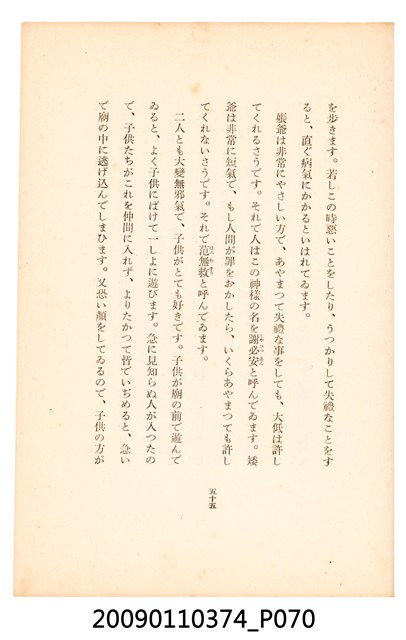 を歩きます。若しこの時惡いことをしたり、うつかりして失禮なことをす
ると、直ぐ病氣にかかるといはれてゐます。
躼爺は非常にやさしい方で、あやまつて失禮な事をしても、大低は許し
てくれるさうです。それで人はこの神樣の名を謝必安と呼んでゐます。矮
爺は非常に短氣で、もし人間が罪をおかしたら、いくらあやまつても許し
てくれないさうです。それで范無救と呼んでゐます。
二人とも大變無邪氣で、子供がとても好きです。子供が廟の前で遊んで
ゐると、よく子供にばけて一しよに遊びます。急に見知らぬ人が入つたの
で、子供たちがこれを仲間に入れず、よりたかつて皆でいぢめると、急い
で廟の中に逃げ込んでしまひます。又恐い顏をしてゐるので、子供の方が
五十五
20090110374_P070